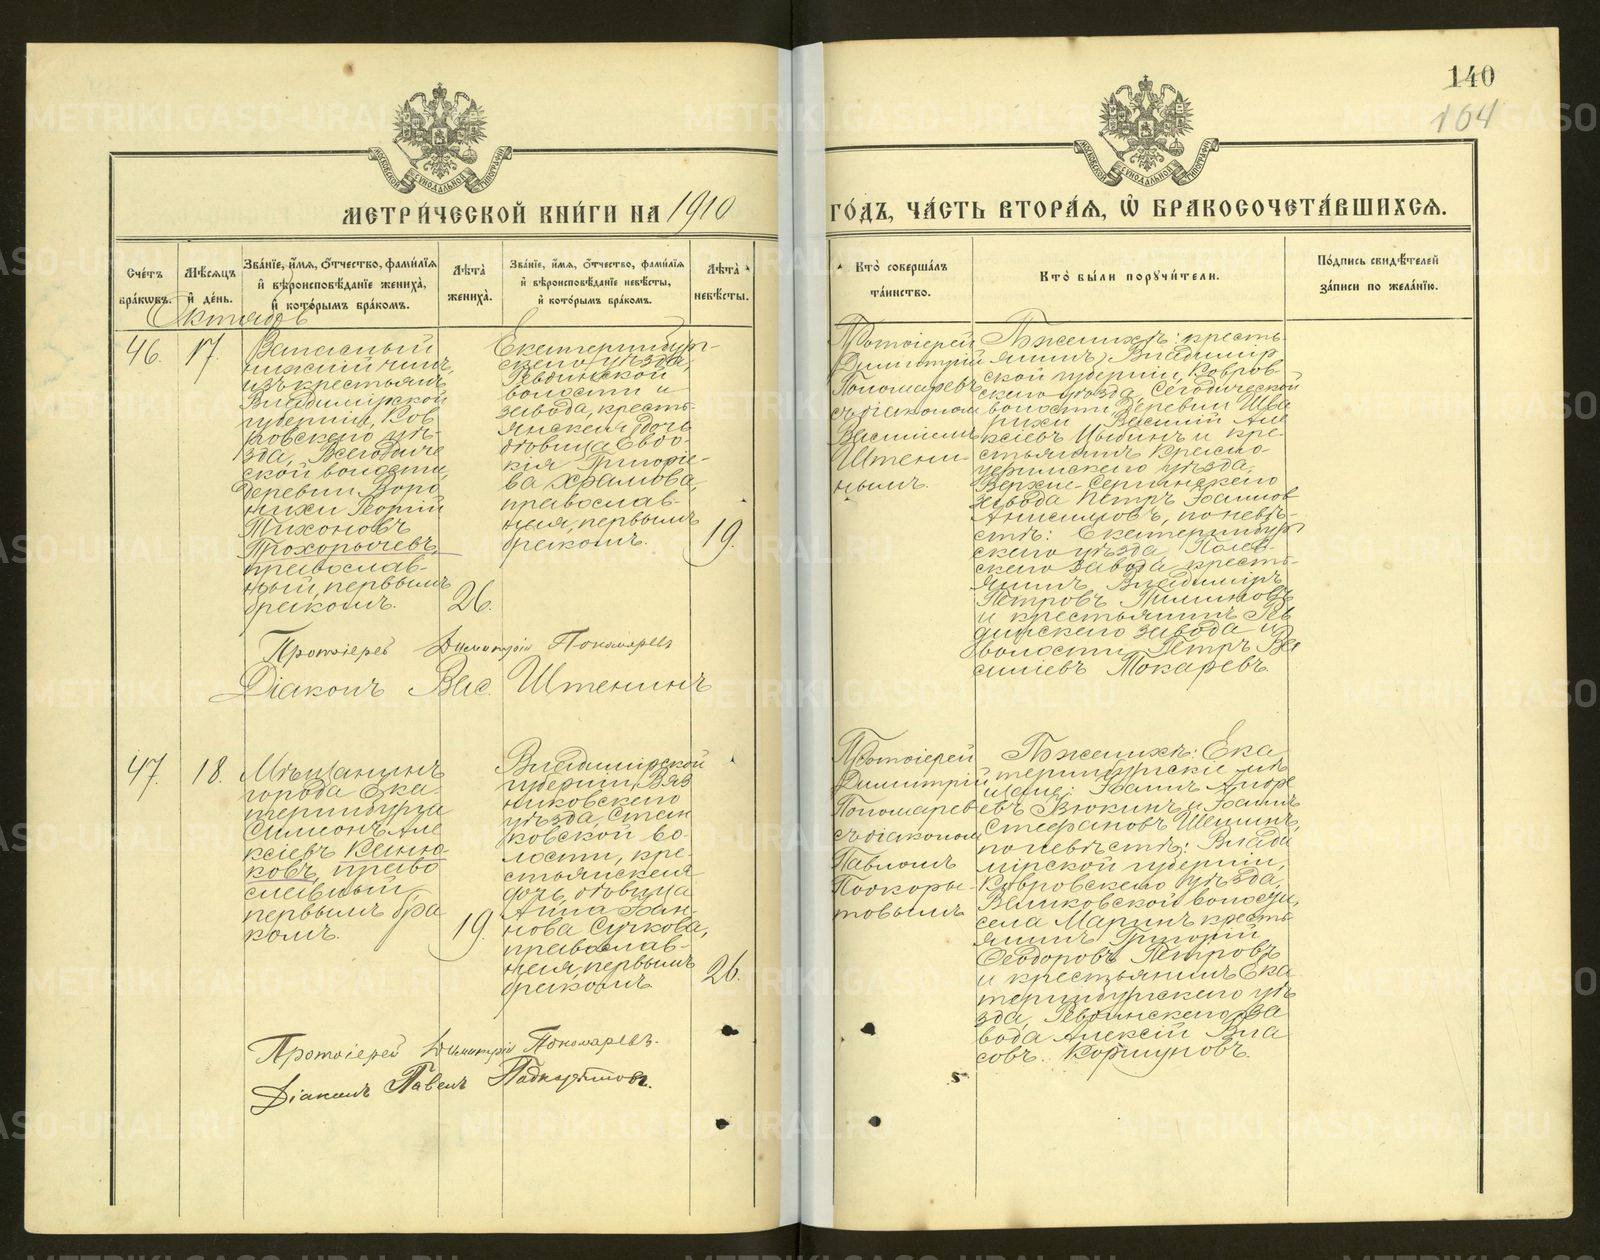 140
164
МЕТРИ́ЧЕСКОЙ КНИ́ГИ НА 1910
ГО́ДЪ, ЧА́СТЬ ВТОРА́Я, Ѡ҆ БРАКОСОЧЕТА́ВШИХСЯ.
Сче́тъ бра́кѡвъ.
Мѣ́сяцъ и҆ де́нь.
Зва́нїе, и҆́мя, ѻ҆́тчество, фами́лїя
и҆ вѣроисповѣ́данїе жениха̀,
и҆ кото́рымъ бра́комъ.
Лѣта̀ жениха̀.
Зва́нїе, и҆́мя, ѻ҆́тчество, фами́лїя
и҆ вѣроисповѣ́данїе невѣ́сты,
и҆ кото́рымъ бра́комъ.
Лѣта̀ невѣ́сты.
Кто̀ соверша́лъ
та́инство.
Кто̀ бы́ли пору́чители.
По́дпись свидѣ́телей
за́писи по жела́нїю.
Октябрь
46.
17.
Запасный
нижній чинъ,
изъ крестьянъ
Владимірской
губерніи, Ков
ровскаго уѣ-
зда, Всегодиче
ской волости
деревни
Георгій
Тихоновъ
Прохорычевъ,
православ-
ный, первымъ
бракомъ.
26.
Екатеринбург-
скаго уѣзда,
Ревдинской
волости и
завода, кресть-
янская дочь
дѣвица Евдо-
кія Григорье-
ва Храмова,
православ-
ная, первымъ
бракомъ.
19.
Протоіерей
Димитрій
Пономаревъ
съ діакономъ
Василіемъ
Штени-
нымъ.
По женихѣ: кресть-
янинъ Владимір
ской губерніи, Ковров-
скаго уѣзда,
волости деревни
Василій Але
ксѣевъ и кре-
стьянинъ Красно-
уфимскаго уѣзда,
Верхне-Сергинскаго
завода Петръ Іоанновъ
Анисимовъ, по невѣ-
стѣ: Екатеринбург
скаго уѣзда, Полев-
скаго завода кресть-
янинъ Владиміръ
Петровъ
и крестьянинъ Рев
динскаго завода и
волости Петръ Ва
силіевъ Токаревъ.
Протоіерей Димитрій Пономаревъ
Діаконъ Вас. Штенинъ
47.
18.
Мѣщанинъ
города Ека-
теринбурга
Симеонъ Але
ксіевъ
ковъ, право
славный,
первымъ бра
комъ.
19.
Владимірской
губерніи, Вяз
никовскаго
уѣзда, Стан
ковской во-
лости, кре-
стьянская
дочь дѣвица
Анна Іоан-
нова Сучкова,
православ-
ная, первымъ
бракомъ
26.
Протоіерей
Димитрій
Пономаревъ
съ діакономъ
Павломъ
Подкоры-
товымъ
По женихѣ: Ека
теринбургскіе мѣ
щане: Іоаннъ Андре
евъ и Іоаннъ
Стефановъ
по невѣстѣ: Влади
мірской губерніи,
Ковровскаго уѣзда,
Великовской волости,
села кресть
янинъ Григорій
Ѳеодоровъ Петровъ
и крестьянинъ Ека
теринбургскаго уѣ
зда, Ревдинскаго за
вода Алексій Вла
совъ Коршуновъ.
Протоіерей Димитрій Пономаревъ.
Діаконъ Павелъ Подкорытовъ.
METRIKI.GASO-URAL.RU